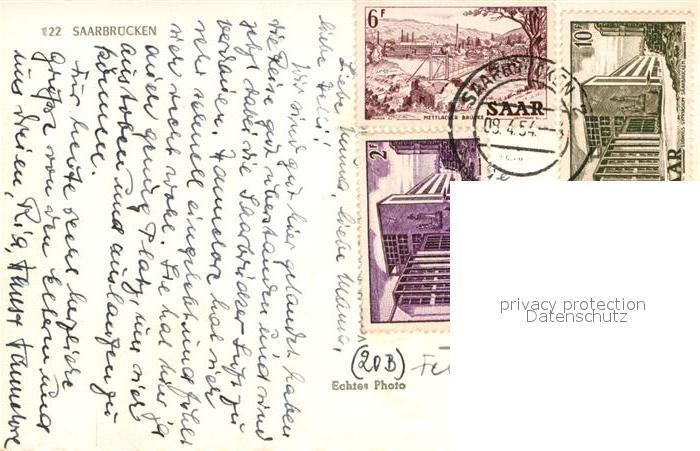 122 SAARBRÜCKEN
Liebe Mama,
liebe
Wir sind gut hier gelandet, haben
die Reise gut überstanden und sind
jetzt dabei die Saarbrücker Luft zu
Hannelore hat sich
sehr schnell eingelebt und fühlt
sich recht wohl. Sie hat hier ja
auch genug Platz, um sich
austoben und auslaufen zu
können.
Für heute recht herzliche
Grüße von den Eltern und
uns Dreien, Ria, Hannelore
6F
METTLACHER BRÜCKE
SAAR
10F
SAAR
2F
SAARBRÜCKEN
2
09.4.54.
(20B)
Echtes Photo
privacy protection
Datenschutz